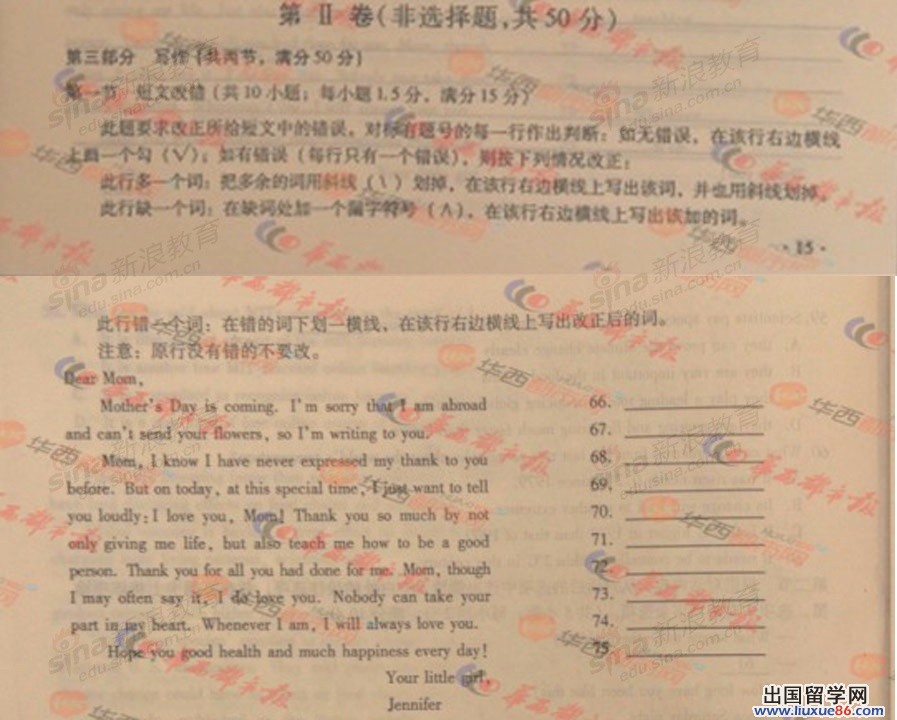 第 Ⅱ 卷(非选择题,共50分)
第三部分 写作(共两节,满分50分)
第一节 短文改错(共10小题;每小题1.5分,满分15分)
此题要求改正所给短文中的错误。对标有题号的每一行作出判断:如无错误,在该行右边横线
上画一个勾(√);如有错误(每行只有一个错误),则按下列情况改正:
此行多一个词:把多余的词用斜线(\)划掉,在该行右边横线上写出该词,并也用斜线划掉。
此行缺一个词:在缺词处加一个漏字符号(∧),在该行右边横线上写出该加的词。
· 15 ·
此行错一个词:在错的词下划一横线,在该行右边横线上写出改正后的词。
注意:原行没有错的不要改。
Dear Mom,
Mother's Day is coming. I'm sorry that I am abroad 66.
and can't send your flowers, so I'm writing to you. 67.
Mom, I know I have never expressed my thank to you 68.
before. But on today, at this special time, I just want to tell 69.
you loudly: I love you, Mom! Thank you so much by not 70.
only giving me life, but also teach me how to be a good 71.
person. Thank you for all you had done for me. Mom, though 72.
I may often say it, I do love you. Nobody can take your 73.
part in my heart. Whenever I am, I will always love you. 74.
Hope you good health and much happiness every day! 75.
Your little girl,
Jennifer
sina新浪教育
edu.sina.com.cn
华西都市报
华西都市网
出国留学网
www.liuxue86.com